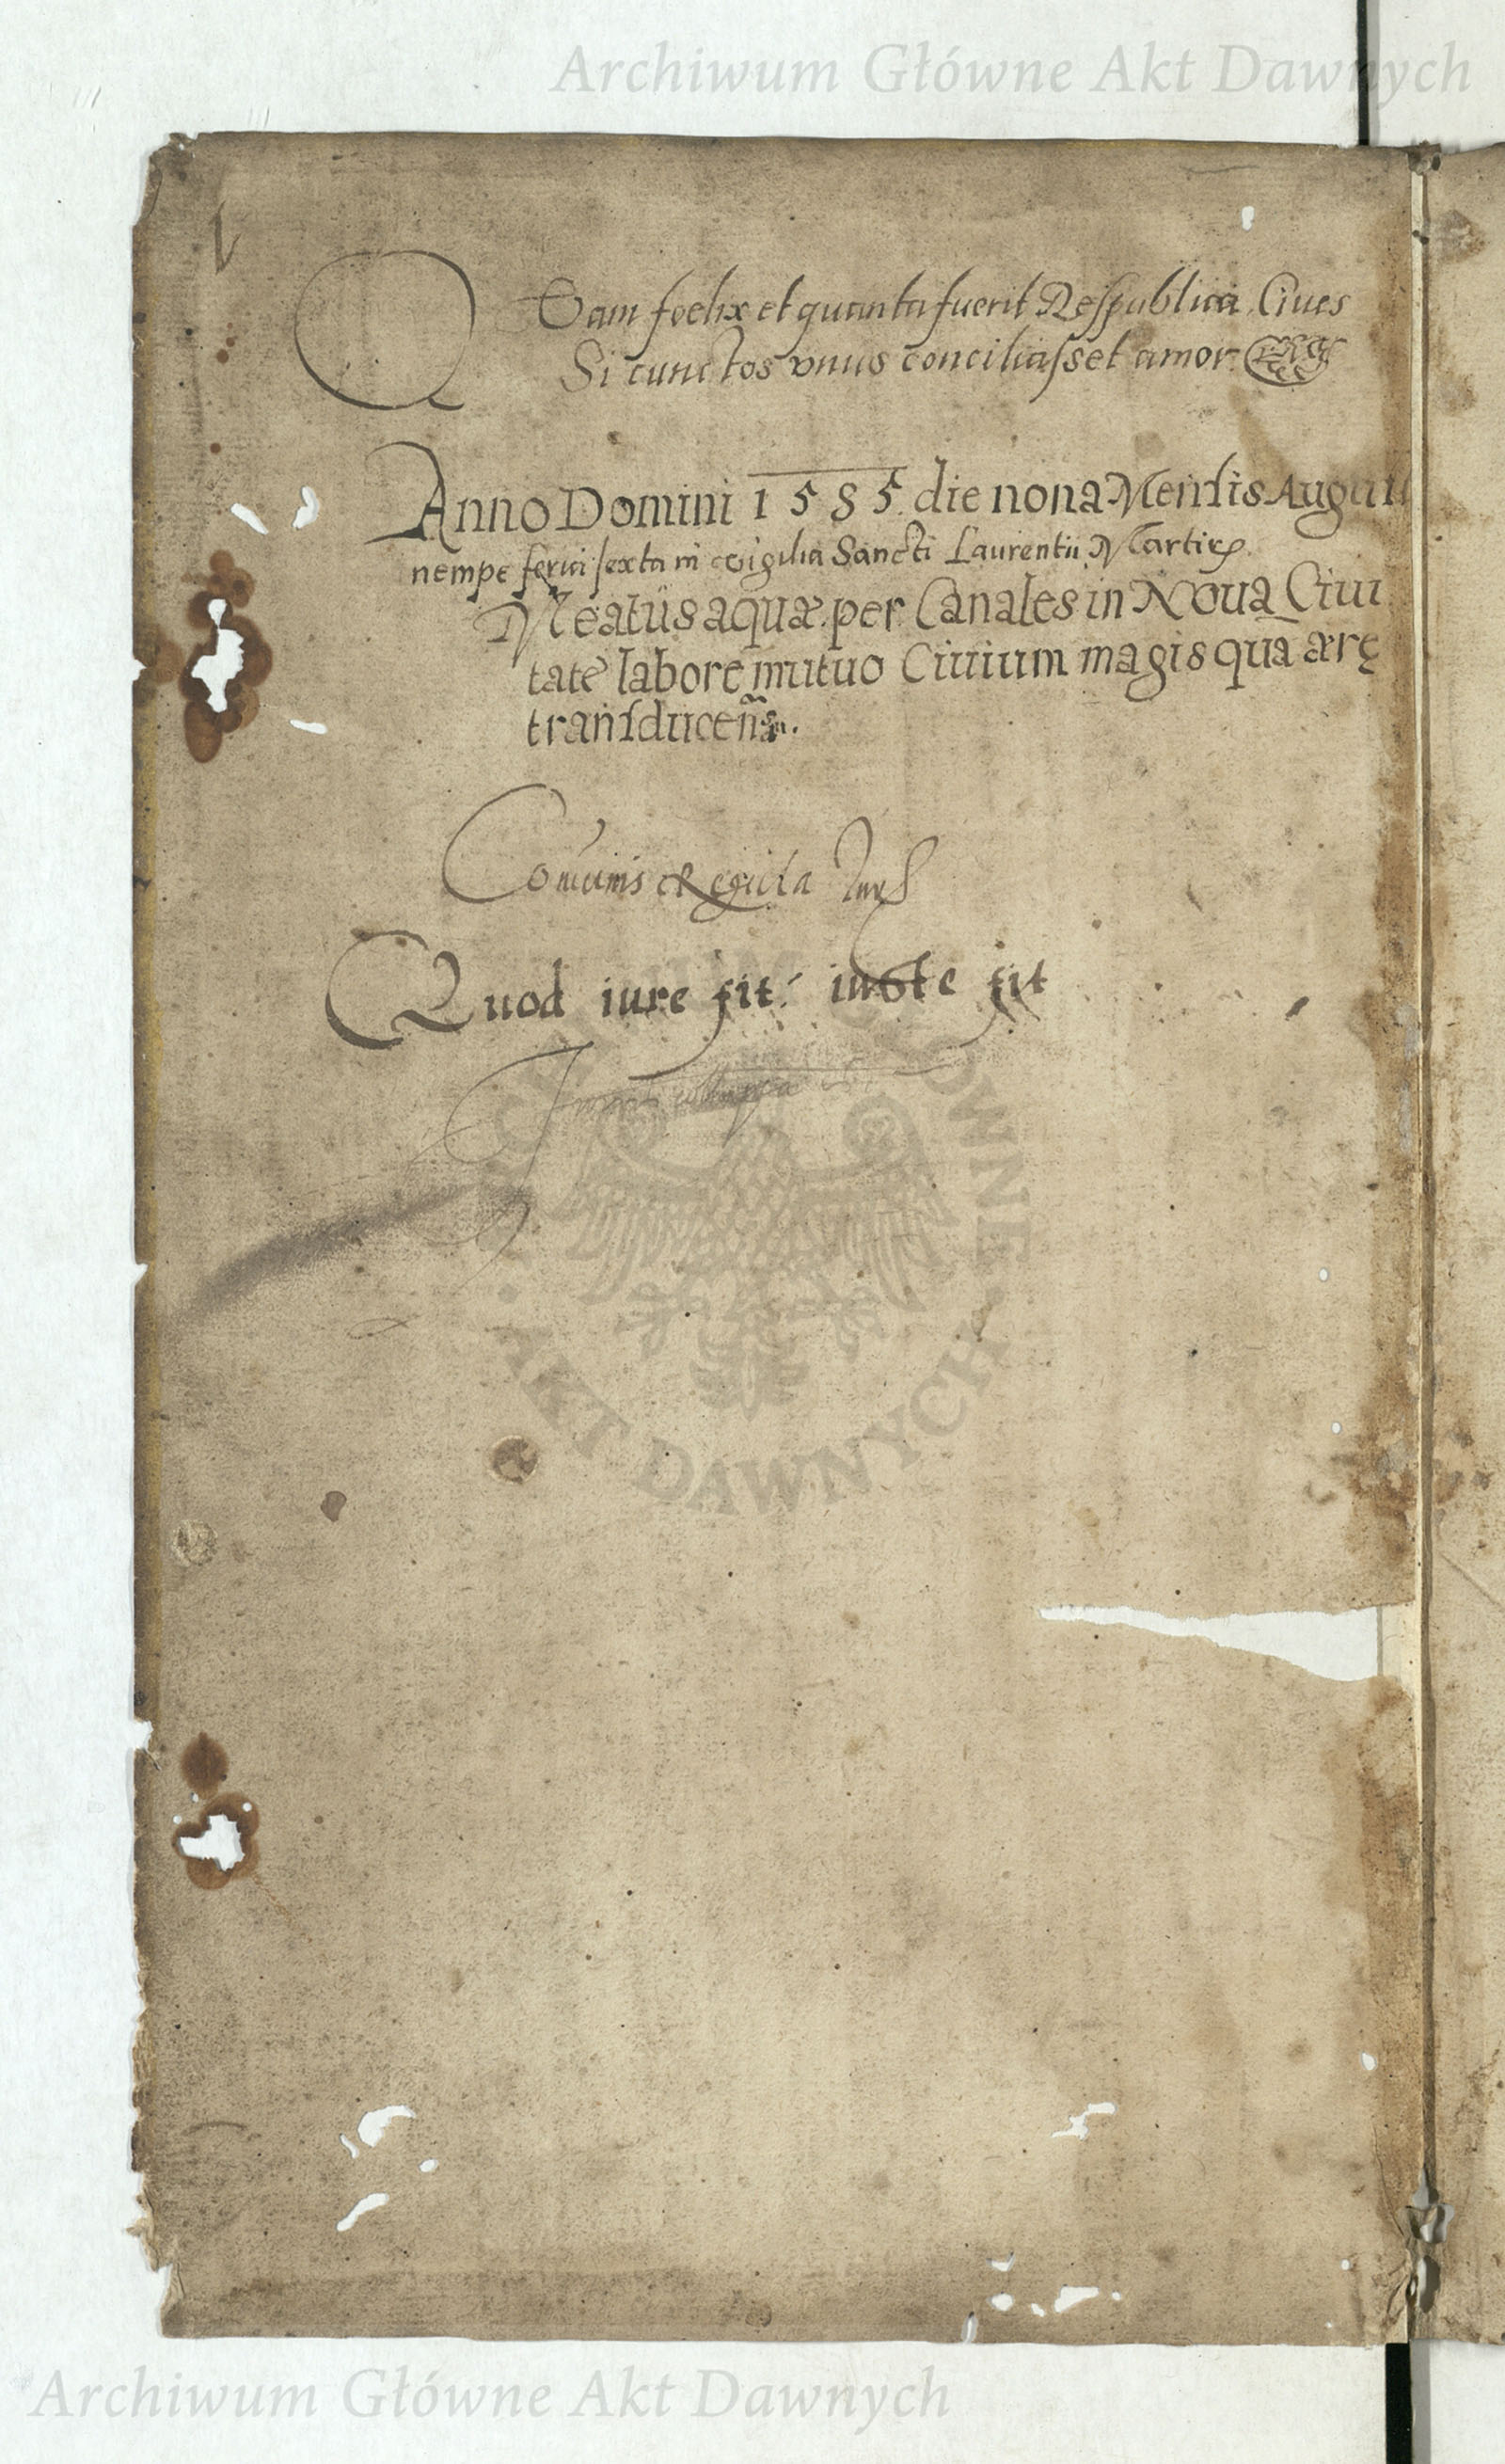 Archiwum Główne Akt Dawnych
QVam foelix et quanta fuerit Respublica, Ciues
Si cunctos vnus conciliasset amor.
Anno Domini 1585. die nona Mensis Augusti
nempe feria sexta in vigilia Sancti Laurentii Martiris
Meatus aquæ per Canales in Noua Ciui
tatē labore mutuo Ciuium magis quā ærę
transducen̄
Com̄unis Regula Iuris
Quod iure fit: iuste fit
ARCHIWUM GŁÓWNE
· AKT DAWNYCH ·
Archiwum Główne Akt Dawnych